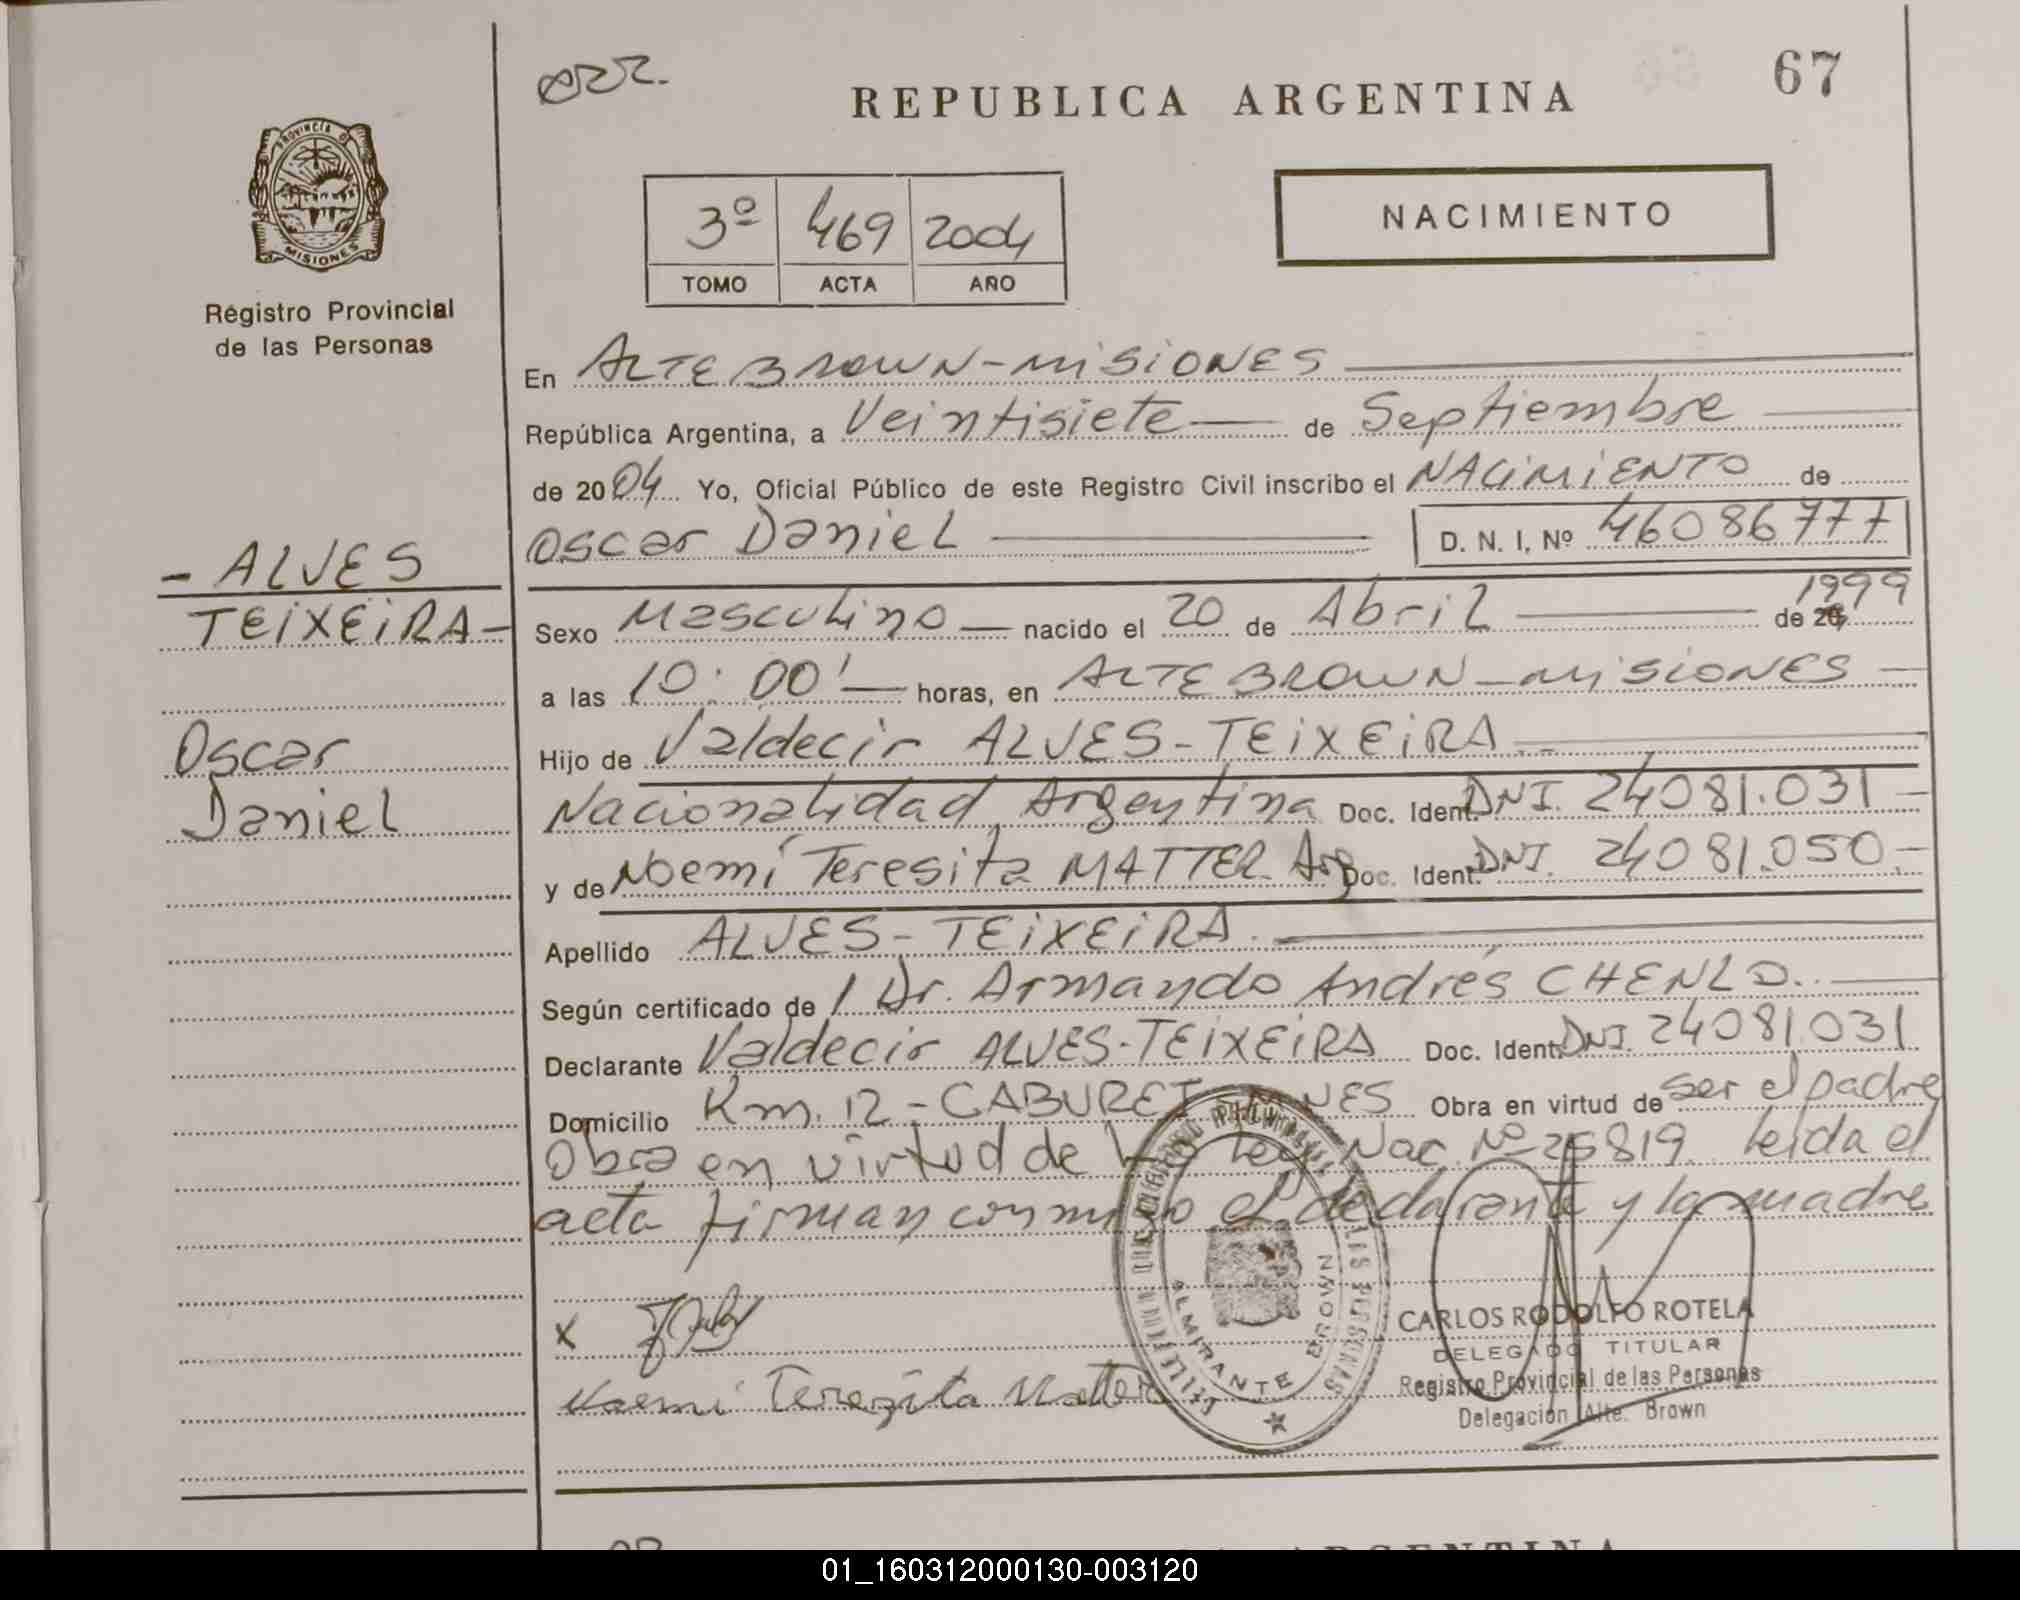 REPUBLICA ARGENTINA
67
PROVINCIA DE
MISIONES
Registro Provincial
de las Personas
3º 469 2004
TOMO ACTA AÑO
NACIMIENTO
En ALTE BROWN - MISIONES
República Argentina, a Veintisiete de Septiembre
de 2004 Yo, Oficial Público de este Registro Civil inscribo el NACIMIENTO de
Oscar Daniel D. N. I. Nº 46086777
- ALVES
TEIXEIRA -
Oscar
Daniel
Sexo Masculino nacido el 20 de Abril de 1999
a las 10:00' horas, en ALTE BROWN - MISIONES
Hijo de Valdecir ALVES - TEIXEIRA
Nacionalidad Argentina Doc. Ident. DNI. 24081.031
y de Noemí Teresita MATTER Arg Doc. Ident. DNI. 24081.050.
Apellido ALVES - TEIXEIRA.
Según certificado de Dr. Armando Andrés CHENLO.
Declarante Valdecir ALVES-TEIXEIRA Doc. Ident. DNI. 24081031
Domicilio Km. 12 - CABUREI - MNES Obra en virtud de ser el padre
Obra en virtud de Ley Nac. Nº 25819. leida el
acta firman conmigo el declarante y la madre
x
Noemi Terezita Matter
ALMIRANTE BROWN
CARLOS RODOLFO ROTELA
DELEGADO TITULAR
Registro Provincial de las Personas
Delegación Alte. Brown
01_160312000130-003120